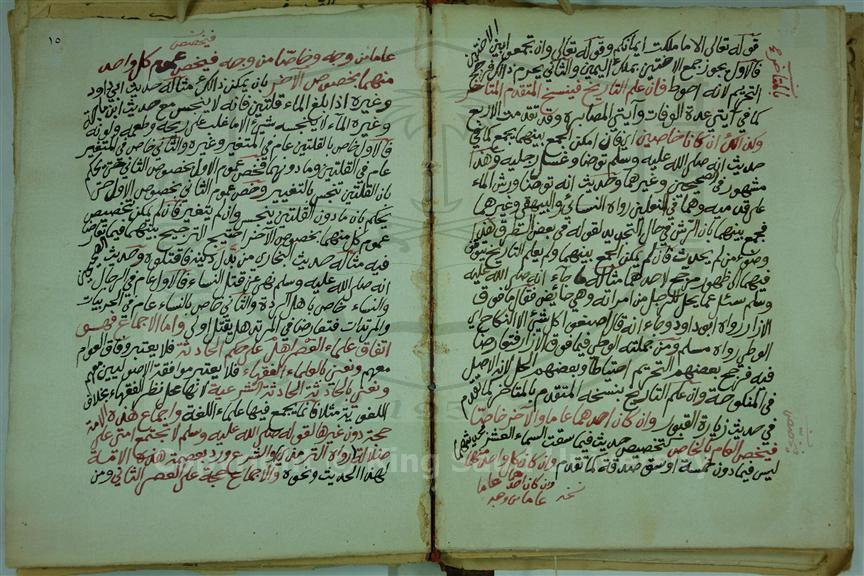 قوله تعالى الا ما ملكت ايمانكم وقوله تعالى وان تجمعوا بين الاختين
فالاول يجوز جمع الاختين بملك اليمين والثاني يحرم ذلك فرجح
التحريم لانه احوط وان علم التاريخ فينسخ المتقدم بالمتاخر
كما في آيتي عدة الوفاة وآيتي المصابرة وقد تقدمت الاربع
وكذلك ان كانا خاصين اي فان امكن الجمع بينهما يجمع كما في
حديث انه صلى الله عليه وسلم توضا وغسل رجليه وهذا
مشهور في الصحيحين وغيرهما وحديث انه توضا ورش الماء
على قدميه وهما في النعلين رواه النسائي والبيهقي وغيرهما
فجمع بينهما بان الرش في حال التجديد لقوله في بعض الطرق هذا
وضوء من لم يحدث فان لم يمكن الجمع بينهما ولم يعلم التاريخ يتوقف
فيهما الى ظهور مرجح لاحدهما مثاله ما جاء انه صلى الله عليه
وسلم سئل عما يحل للرجل من امراته وهي حائض فقال ما فوق
الازار رواه ابو داود وجاء انه قال اصنعوا كل شيء الا النكاح اي
الوطي رواه مسلم ومن جملته الوطي فيما فوق الازار فتعارضا
فيه فرجح بعضهم التحريم احتياطا وبعضهم الحل لانه الاصل
في المنكوحة وان علم التاريخ ينسخ المتقدم بالمتاخر كما تقدم
في حديث زيارة القبور وان كان احدهما عاما والآخر خاصا
فيخص العام بالخاص كتخصيص حديث فيما سقت السماء العشر بحديثهما
ليس فيما دون خمسة اوسق صدقة كما تقدم وان كان كل واحد منهما
وان كان احدهما عاما
نسخة عاما من وجه
١٥
فيخصص
عاما من وجه وخاصا من وجه فيخص عموم كل واحد
منهما بخصوص الآخر بان يمكن ذلك مثاله حديث ابي داود
وغيره اذا بلغ الماء قلتين فانه لا ينجس مع حديث ابن ماجه
وغيره الماء لا ينجسه شيء الا ما غلب على ريحه وطعمه ولونه
فالاول خاص بالقلتين عام في المتغير وغيره والثاني خاص في المتغير
عام في القلتين وما دونهما فخص عموم الاول بخصوص الثاني حتى يحكم
بان القلتين تنجس بالتغيير وخص عموم الثاني بخصوص الاول حتى
يحكم بان ما دون القلتين ينجس وان لم يتغير فان لم يمكن تخصيص
عموم كل منهما بخصوص الآخر احتيج الى الترجيح بينهما فيما تعارضا
فيه مثاله حديث البخاري من بدل دينه فاقتلوه وحديث الصحيحين
انه صلى الله عليه وسلم نهى عن قتل النساء فالاول عام في الرجال
والنساء خاص باهل الردة والثاني خاص بالنساء عام في الحربيات
والمرتدات فتعارضا في المرتدة هل تقتل او لا واما الاجماع فهو
اتفاق علماء العصر اهل على حكم الحادثة فلا يعتبر وفاق العوام
معهم ونعني بالعلماء الفقهاء فلا يعتبر موافقة الاصوليين معهم
ونعني بالحادثة الحادثة الشرعية لانها محل نظر الفقهاء بخلاف
اللغوية مثلا فانما يجمع فيها علماء اللغة واجماع هذه الامة
حجة دون غيرها لقوله صلى الله عليه وسلم لا تجتمع امتي على
ضلالة رواه الترمذي وغيره والشرع ورد بعصمة هذه الامة
لهذا الحديث ونحوه والاجماع حجة على العصر الثاني ومن